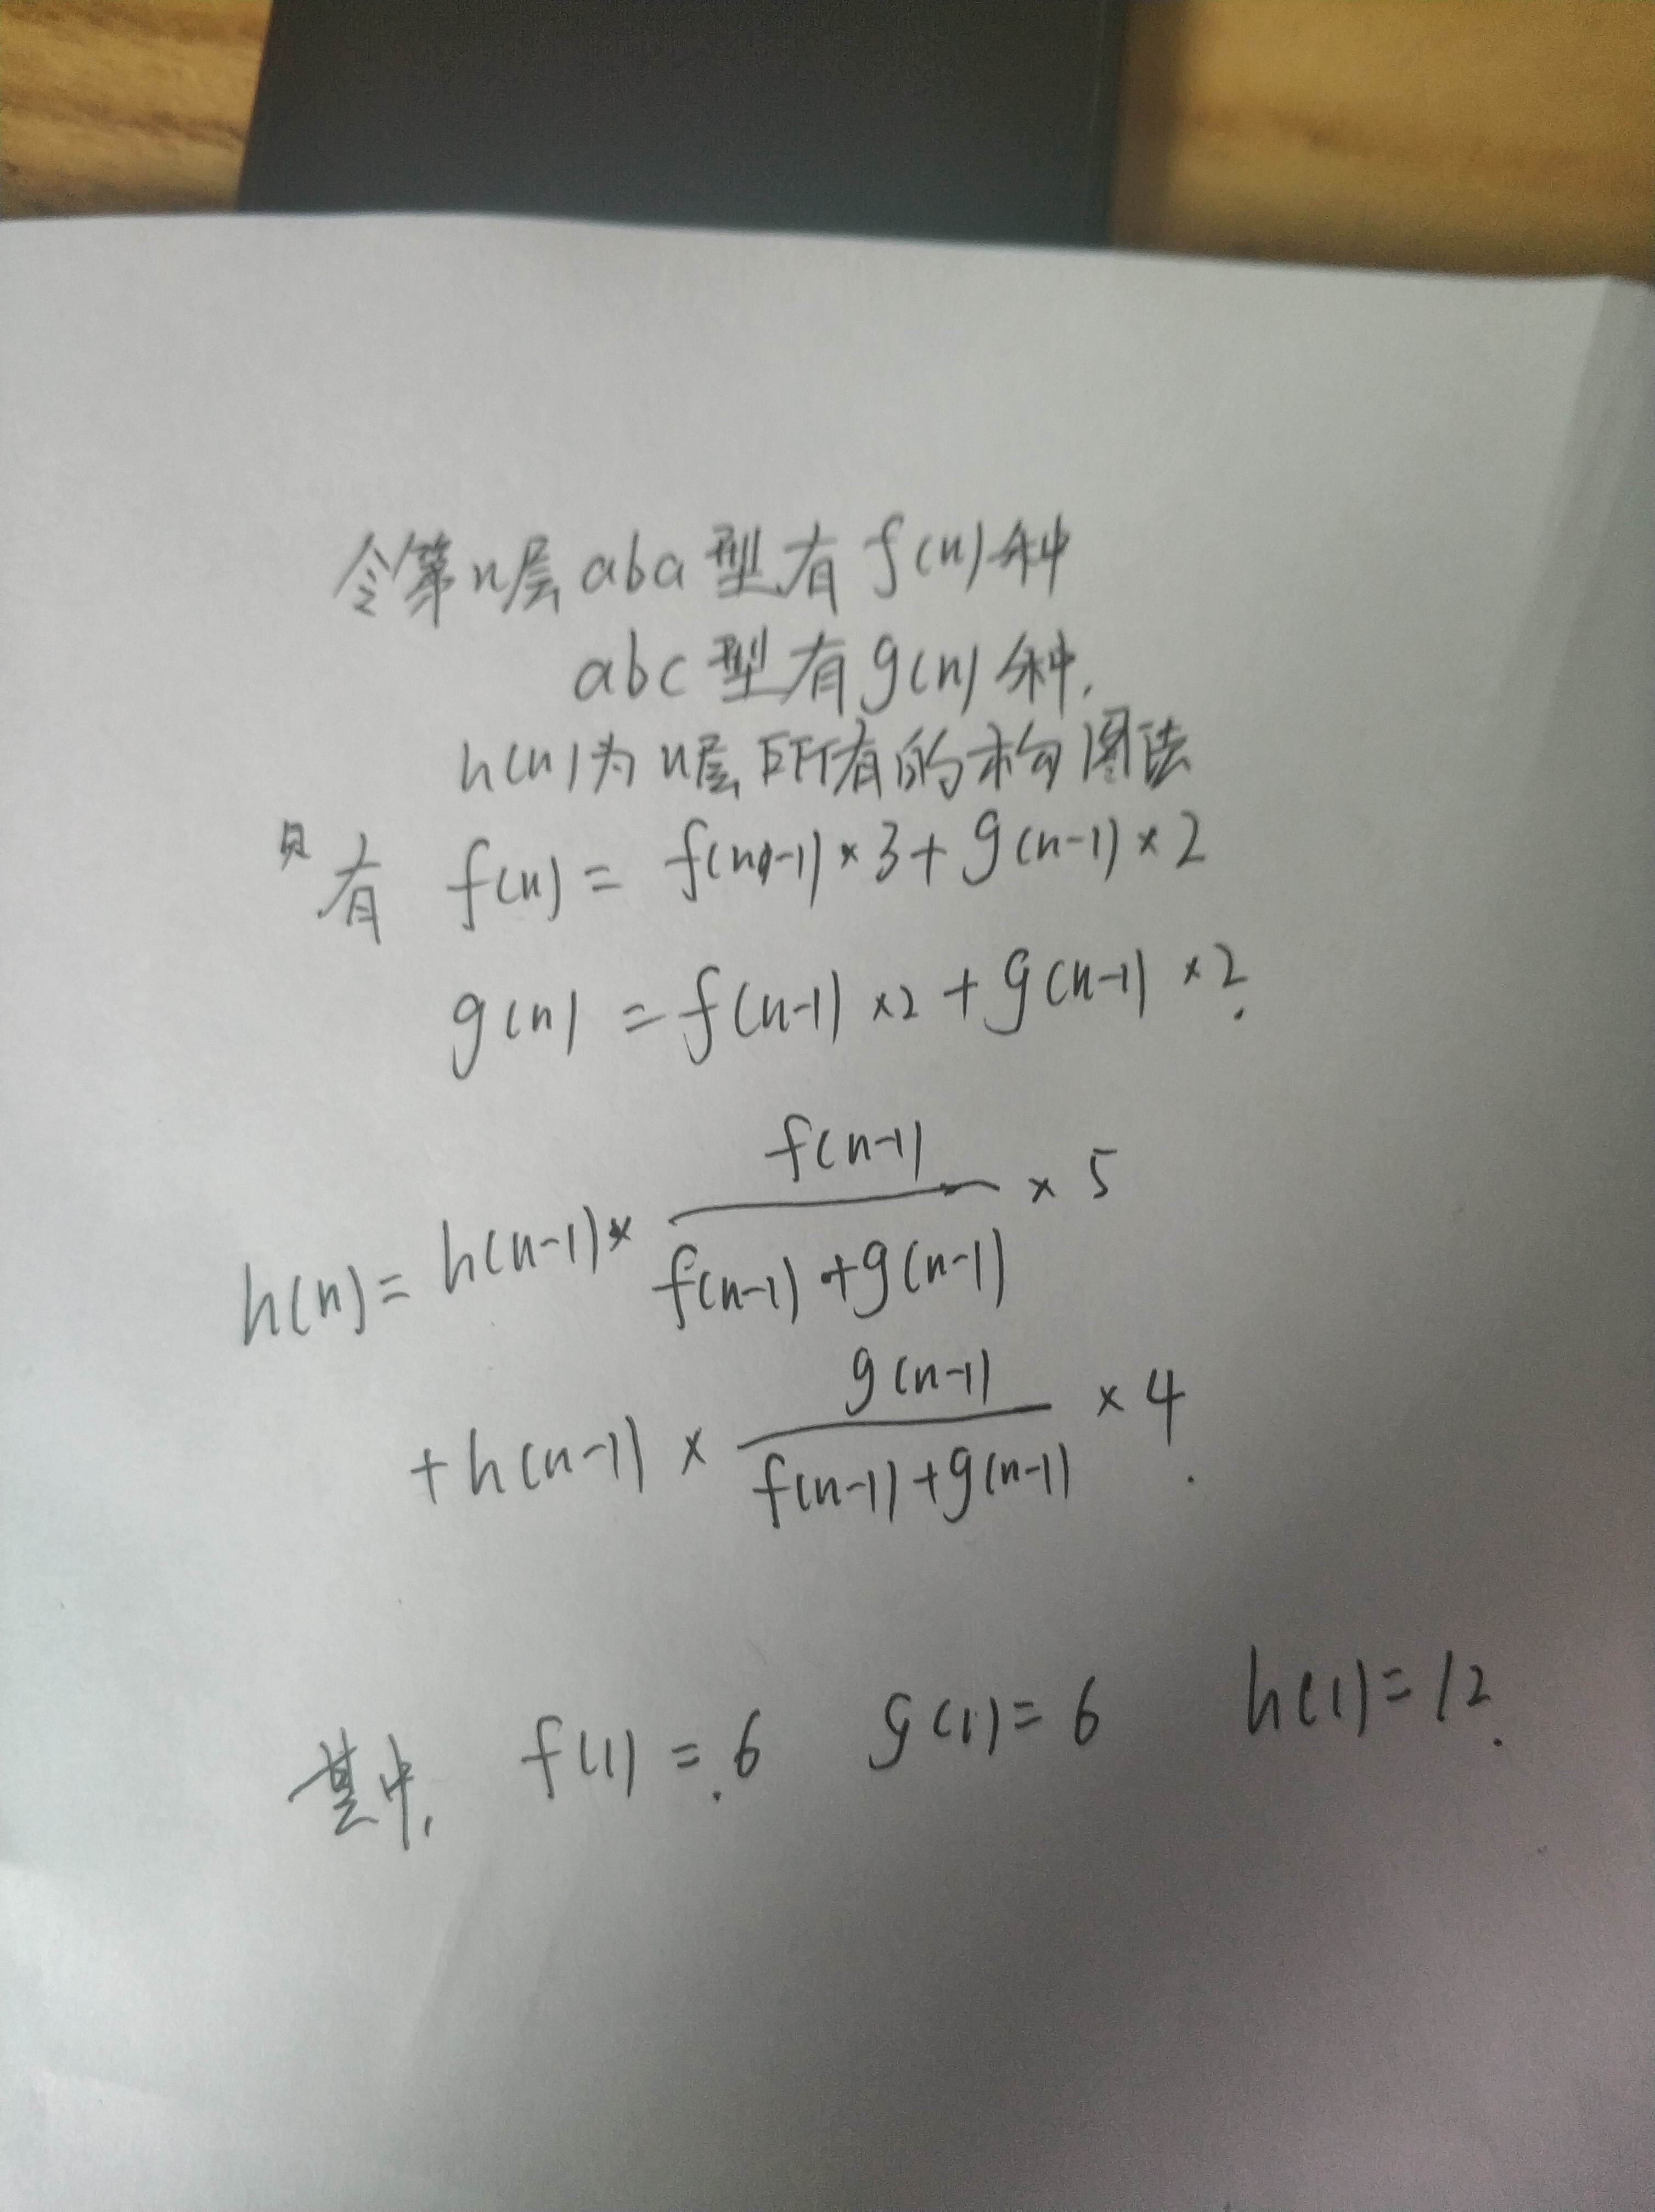 令第n层aba型有f(n)种
abc型有g(n)种.
h(n)为n层所有的构图法
则有 f(n) = f(n-1)×3+g(n-1)×2
g(n) = f(n-1)×2+g(n-1)×2.
h(n) = h(n-1)× f(n-1) / f(n-1)+g(n-1) × 5
+h(n-1) × g(n-1) / f(n-1)+g(n-1) ×4.
其中, f(1)=6 g(1)=6 h(1)=12.